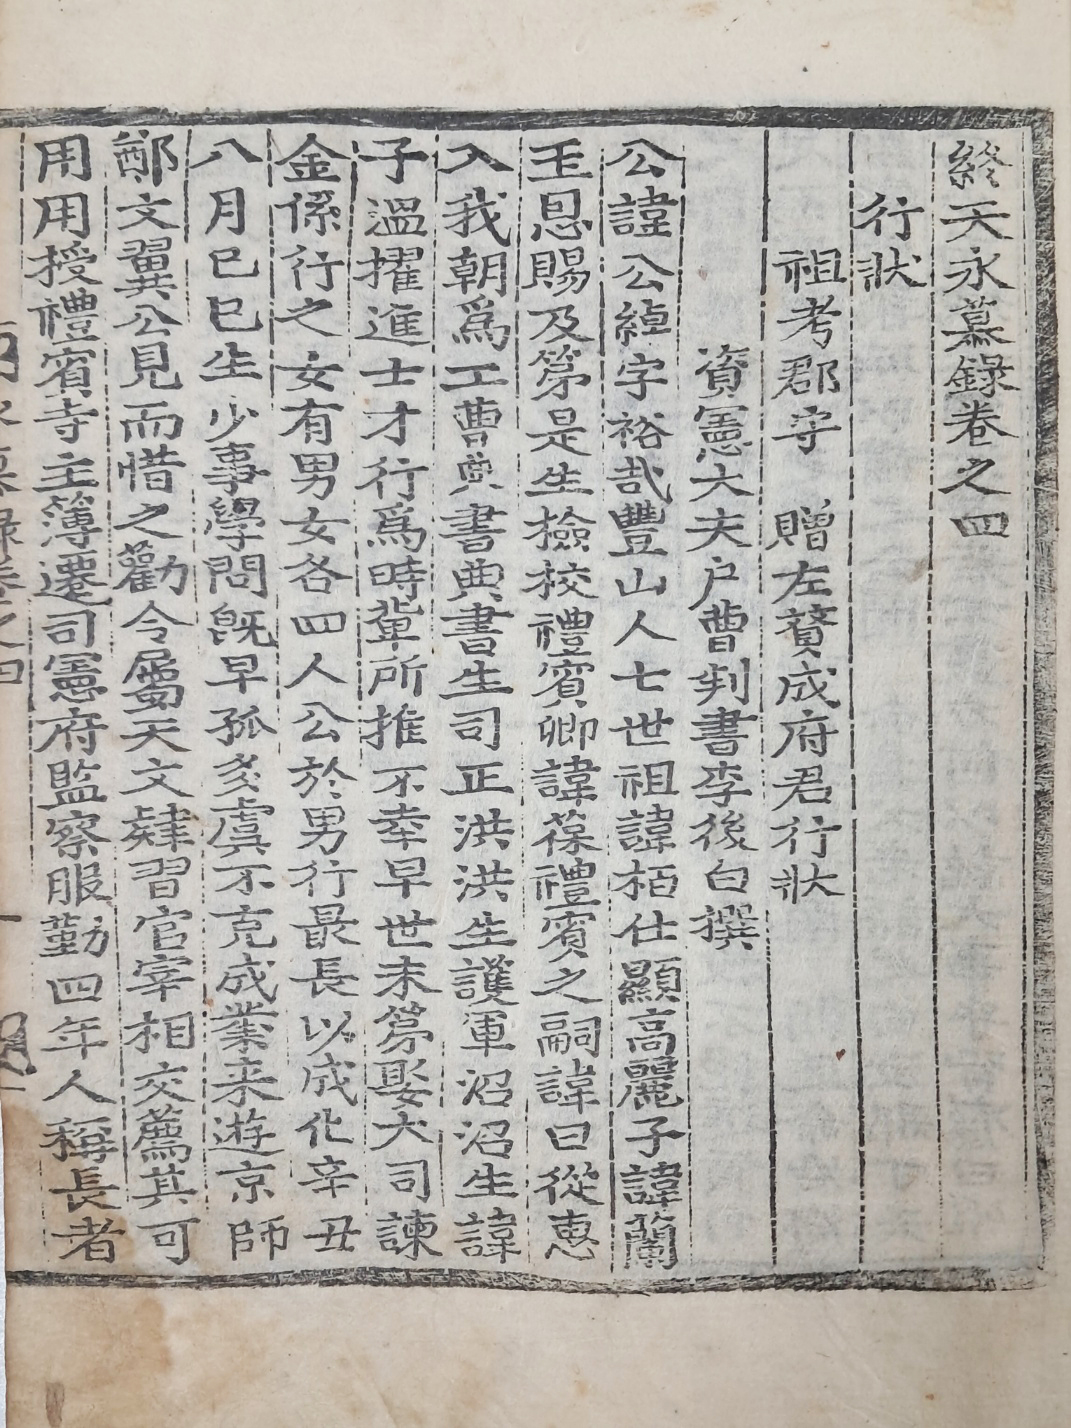 終天永慕錄卷之四
行狀
祖考郡守　贈左贊成府君行狀
資憲大夫戶曹判書李後白撰
公諱公綽字裕哉豐山人七世祖諱栢仕顯高麗子諱蘭
玉恩賜及第是生檢校禮賓卿諱葆禮賓之嗣諱曰從惠
入我朝爲工曹典書典書生司正洪洪生護軍沼沼生諱
子溫擢進士才行爲時輩所推不幸早世未第娶大司諫
金係行之女有男女各四人公於男行最長以成化辛丑
八月己巳生少事學問旣早孤多虞不克成業來遊京師
鄭文翼公見而惜之勸令屬天文肄習官宰相交薦其可
用用授禮賓寺主簿遷司憲府監察服勤四年人稱長者